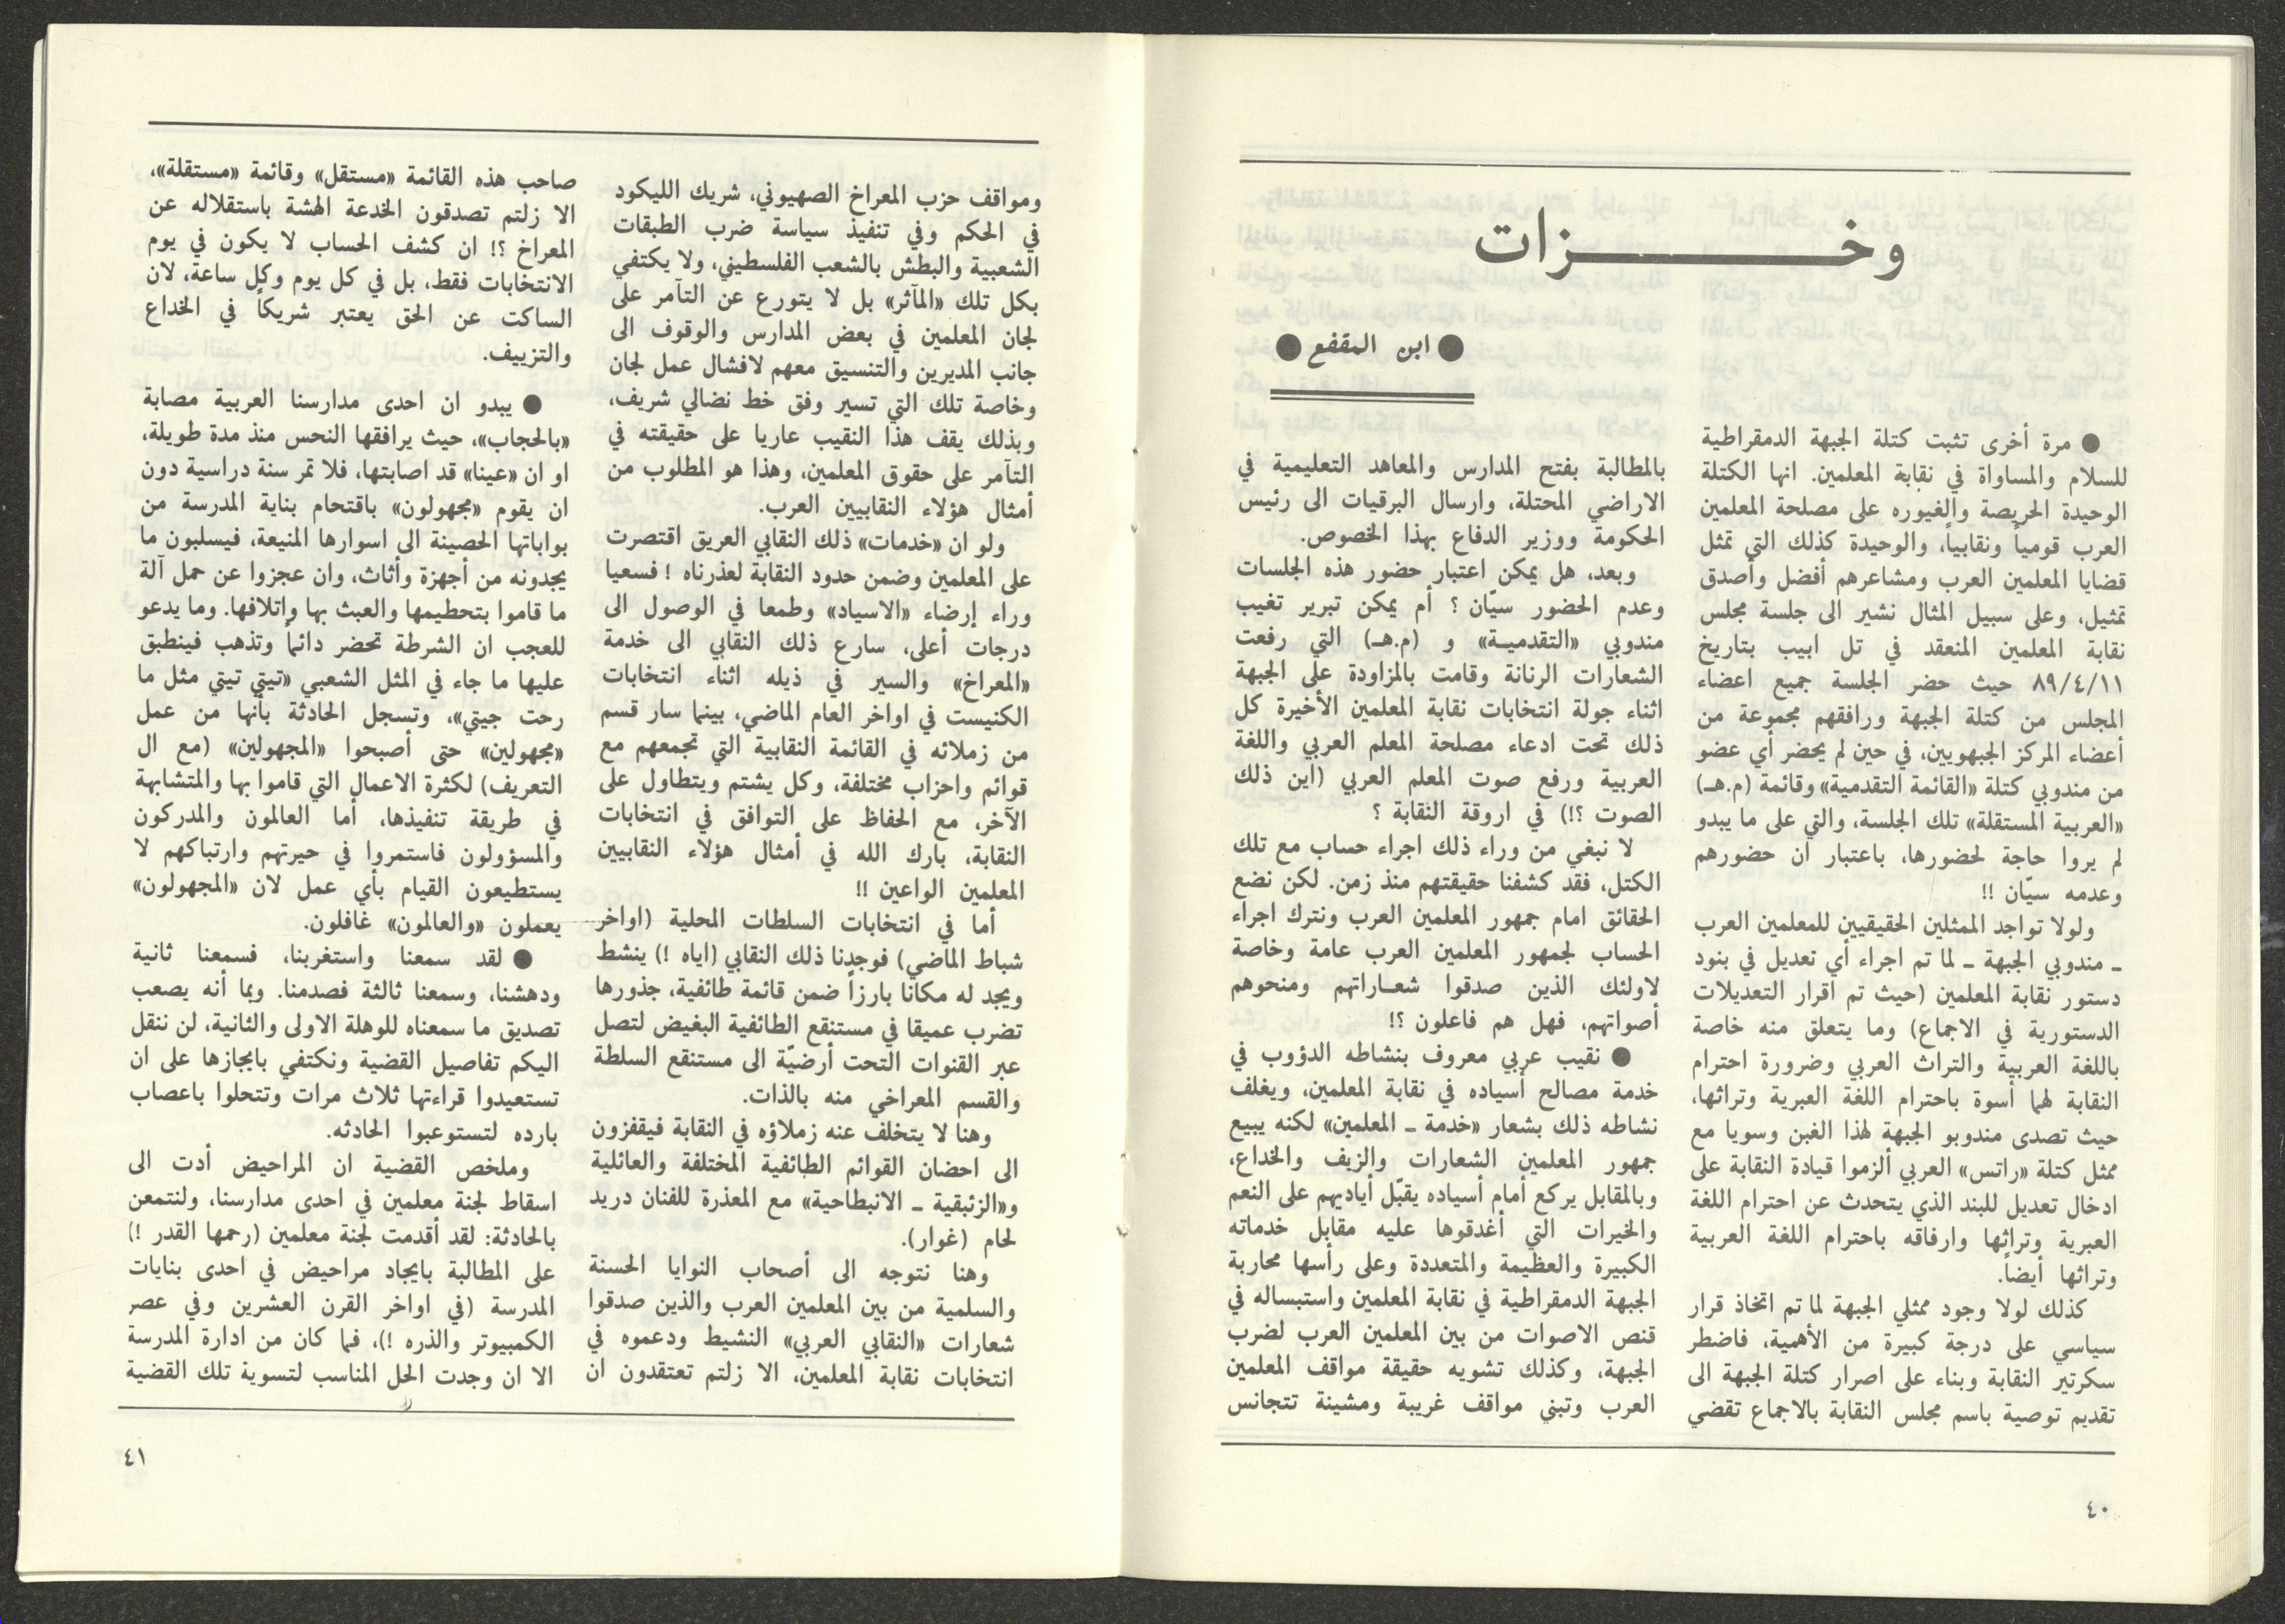 وخـــــــزات
● ابن المقفع ●
● مرة أخرى تثبت كتلة الجبهة الدمقراطية
للسلام والمساواة في نقابة المعلمين. انها الكتلة
الوحيدة الحريصة والغيوره على مصلحة المعلمين
العرب قومياً ونقابياً، والوحيدة كذلك التي تمثل
قضايا المعلمين العرب ومشاعرهم أفضل وأصدق
تمثيل، وعلى سبيل المثال نشير الى جلسة مجلس
نقابة المعلمين المنعقد في تل ابيب بتاريخ
٨٩/٤/١١ حيث حضر الجلسة جميع اعضاء
المجلس من كتلة الجبهة ورافقهم مجموعة من
أعضاء المركز الجبهويين، في حين لم يحضر أي عضو
من مندوبي كتلة «القائمة التقدمية» وقائمة (م.هـ)
«العربية المستقلة» تلك الجلسة، والتي على ما يبدو
لم يروا حاجة لحضورها، باعتبار ان حضورهم
وعدمه سيّان !!
ولولا تواجد الممثلين الحقيقيين للمعلمين العرب
ـ مندوبي الجبهة ـ لما تم اجراء أي تعديل في بنود
دستور نقابة المعلمين (حيث تم اقرار التعديلات
الدستورية في الاجماع) وما يتعلق منه خاصة
باللغة العربية والتراث العربي وضرورة احترام
النقابة لهما أسوة باحترام اللغة العبرية وتراثها،
حيث تصدى مندوبو الجبهة لهذا الغبن وسويا مع
ممثل كتلة «راتس» العربي ألزموا قيادة النقابة على
ادخال تعديل للبند الذي يتحدث عن احترام اللغة
العبرية وتراثها وارفاقه باحترام اللغة العربية
وتراثها أيضاً.
كذلك لولا وجود ممثلي الجبهة لما تم اتخاذ قرار
سياسي على درجة كبيرة من الأهمية، فاضطر
سكرتير النقابة وبناء على اصرار كتلة الجبهة الى
تقديم توصية باسم مجلس النقابة بالاجماع تقضي
بالمطالبة بفتح المدارس والمعاهد التعليمية في
الاراضي المحتلة، وارسال البرقيات الى رئيس
الحكومة ووزير الدفاع بهذا الخصوص.
وبعد، هل يمكن اعتبار حضور هذه الجلسات
وعدم الحضور سيّان ؟ أم يمكن تبرير تغيب
مندوبي «التقدميـة» و (م.هـ) التي رفعت
الشعارات الرنانة وقامت بالمزاودة على الجبهة
اثناء جولة انتخابات نقابة المعلمين الأخيرة كل
ذلك تحت ادعاء مصلحة المعلم العربي واللغة
العربية ورفع صوت المعلم العربي (اين ذلك
الصوت ؟!) في اروقة النقابة ؟
لا نبغي من وراء ذلك اجراء حساب مع تلك
الكتل، فقد كشفنا حقيقتهم منذ زمن. لكن نضع
الحقائق امام جمهور المعلمين العرب ونترك اجراء
الحساب لجمهور المعلمين العرب عامة وخاصة
لاولئك الذين صدقوا شعـاراتهم ومنحوهم
أصواتهم، فهل هم فاعلون ؟!
● نقيب عربي معروف بنشاطه الدؤوب في
خدمة مصالح أسياده في نقابة المعلمين، ويغلف
نشاطه ذلك بشعار «خدمة ـ المعلمين» لكنه يبيع
جمهور المعلمين الشعارات والزيف والخداع،
وبالمقابل يركع أمام أسياده يقبّل أياديهم على النعم
والخيرات التي أغدقوها عليه مقابل خدماته
الكبيرة والعظيمة والمتعددة وعلى رأسها محاربة
الجبهة الدمقراطية في نقابة المعلمين واستبساله في
قنص الاصوات من بين المعلمين العرب لضرب
الجبهة، وكذلك تشويه حقيقة مواقف المعلمين
العرب وتبني مواقف غريبة ومشينة تتجانس
٤٠
ومواقف حزب المعراخ الصهيوني، شريك الليكود
في الحكم وفي تنفيذ سياسة ضرب الطبقات
الشعبية والبطش بالشعب الفلسطيني، ولا يكتفي
بكل تلك «المآثر» بل لا يتورع عن التآمر على
لجان المعلمين في بعض المدارس والوقوف الى
جانب المديرين والتنسيق معهم لافشال عمل لجان
وخاصة تلك التي تسير وفق خط نضالي شريف،
وبذلك يقف هذا النقيب عاريا على حقيقته في
التآمر على حقوق المعلمين، وهذا هو المطلوب من
أمثال هؤلاء النقابيين العرب.
ولو ان «خدمات» ذلك النقابي العريق اقتصرت
على المعلمين وضمن حدود النقابة لعذرناه ! فسعيا
وراء إرضاء «الاسياد» وطمعا في الوصول الى
درجات أعلى، سارع ذلك النقابي الى خدمة
«المعراخ» والسير في ذيله اثناء انتخابات
الكنيست في اواخر العام الماضي، بينما سار قسم
من زملائه في القائمة النقابية التي تجمعهم مع
قوائم واحزاب مختلفة، وكل يشتم ويتطاول على
الآخر، مع الحفاظ على التوافق في انتخابات
النقابة، بارك الله في أمثال هؤلاء النقابيين
المعلمين الواعين !!
أما في انتخابات السلطات المحلية (اواخر
شباط الماضي) فوجدنا ذلك النقابي (اياه !) ينشط
ويجد له مكاناً بارزاً ضمن قائمة طائفية، جذورها
تضرب عميقا في مستنقع الطائفية البغيض لتصل
عبر القنوات التحت أرضيّة الى مستنقع السلطة
والقسم المعراخي منه بالذات.
وهنا لا يتخلف عنه زملاؤه في النقابة فيقفزون
الى احضان القوائم الطائفية المختلفة والعائلية
و«الزئبقية ـ الانبطاحية» مع المعذرة للفنان دريد
لحام (غوار).
وهنا نتوجه الى أصحاب النوايا الحسنة
والسلمية من بين المعلمين العرب والذين صدقوا
شعارات «النقابي العربي» النشيط ودعموه في
انتخابات نقابة المعلمين، الا زلتم تعتقدون ان
صاحب هذه القائمة «مستقل» وقائمة «مستقلة»،
الا زلتم تصدقون الخدعة الهشة باستقلاله عن
المعراخ ؟! ان كشف الحساب لا يكون في يوم
الانتخابات فقط، بل في كل يوم وكل ساعة، لان
الساكت عن الحق يعتبر شريكاً في الخداع
والتزييف.
● يبدو ان احدى مدارسنا العربية مصابة
«بالحجاب»، حيث يرافقها النحس منذ مدة طويلة،
او ان «عينا» قد اصابتها، فلا تمر سنة دراسية دون
ان يقوم «مجهولون» باقتحام بناية المدرسة من
بواباتها الحصينة الى اسوارها المنيعة، فيسلبون ما
يجدونه من أجهزة وأثاث، وان عجزوا عن حمل آلة
ما قاموا بتحطيمها والعبث بها واتلافها. وما يدعو
للعجب ان الشرطة تحضر دائماً وتذهب فينطبق
عليها ما جاء في المثل الشعبي «تيتي تيتي مثل ما
رحت جيتي»، وتسجل الحادثة بأنها من عمل
«مجهولين» حتى أصبحوا «المجهولين» (مع ال
التعريف) لكثرة الاعمال التي قاموا بها والمتشابهة
في طريقة تنفيذها، أما العالمون والمدركون
والمسؤولون فاستمروا في حيرتهم وارتباكهم لا
يستطيعون القيام بأي عمل لان «المجهولون»
يعملون «والعالمون» غافلون.
● لقد سمعنا واستغربنا، فسمعنا ثانية
ودهشنا، وسمعنا ثالثة فصدمنا. وبما أنه يصعب
تصديق ما سمعناه للوهلة الاولى والثانية، لن ننقل
اليكم تفاصيل القضية ونكتفي بايجازها على ان
تستعيدوا قراءتها ثلاث مرات وتتحلوا باعصاب
بارده لتستوعبوا الحادثه.
وملخص القضية ان المراحيض أدت الى
اسقاط لجنة معلمين في احدى مدارسنا، ولنتمعن
بالحادثة: لقد أقدمت لجنة معلمين (رحمها القدر !)
على المطالبة بايجاد مراحيض في احدى بنايات
المدرسة (في اواخر القرن العشرين وفي عصر
الكمبيوتر والذره !)، فما كان من ادارة المدرسة
الا ان وجدت الحل المناسب لتسوية تلك القضية
٤١